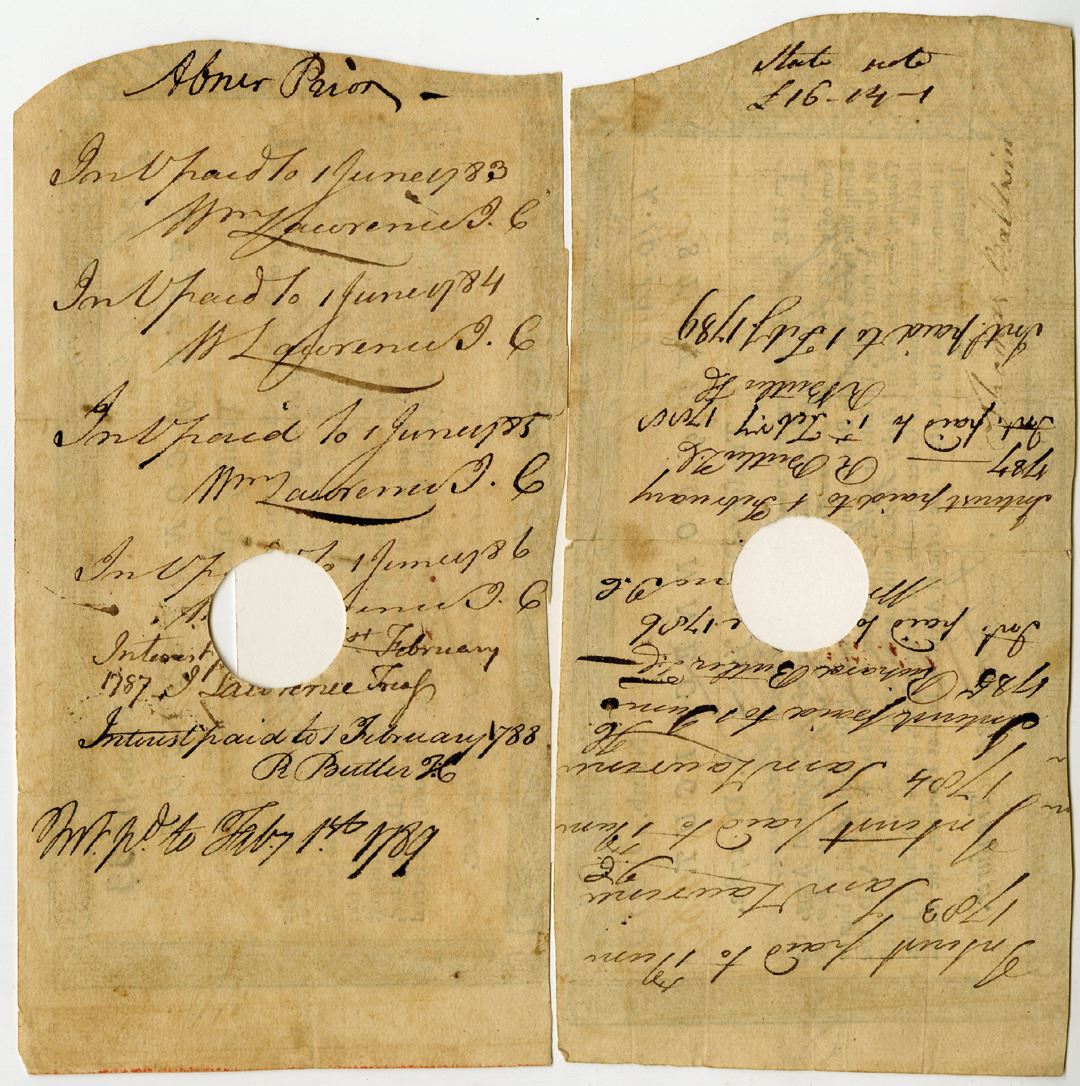 Abner Prior
Int paid to 1 June 1783
Wm Lawrence T. C
Int paid to 1 June 1784
W Lawrence T. C
Int paid to 1 June 1785
Wm Lawrence T. C
Int pa to 1 June 1786
W ence T. C
Interest 1st February
1787 J Lawrence Treas
Interest paid to 1 February 1788
R Butler T.C
Int. pd. to Feby 1st 1789
State note
£16-14-1
Interest paid to 1 June
1783 Lawrence
Interest paid to 1 June
1784 Lawrence
Interest paid to 1 June
1785 Richard Butler T C
Int. paid to e 1786
W nce T. C
Interest paid to 1 February
1787 R Butler T C
Int. paid to 1st Febry 1788
R Butler T C
Int. paid to 1 Feby 1789
Baldwin